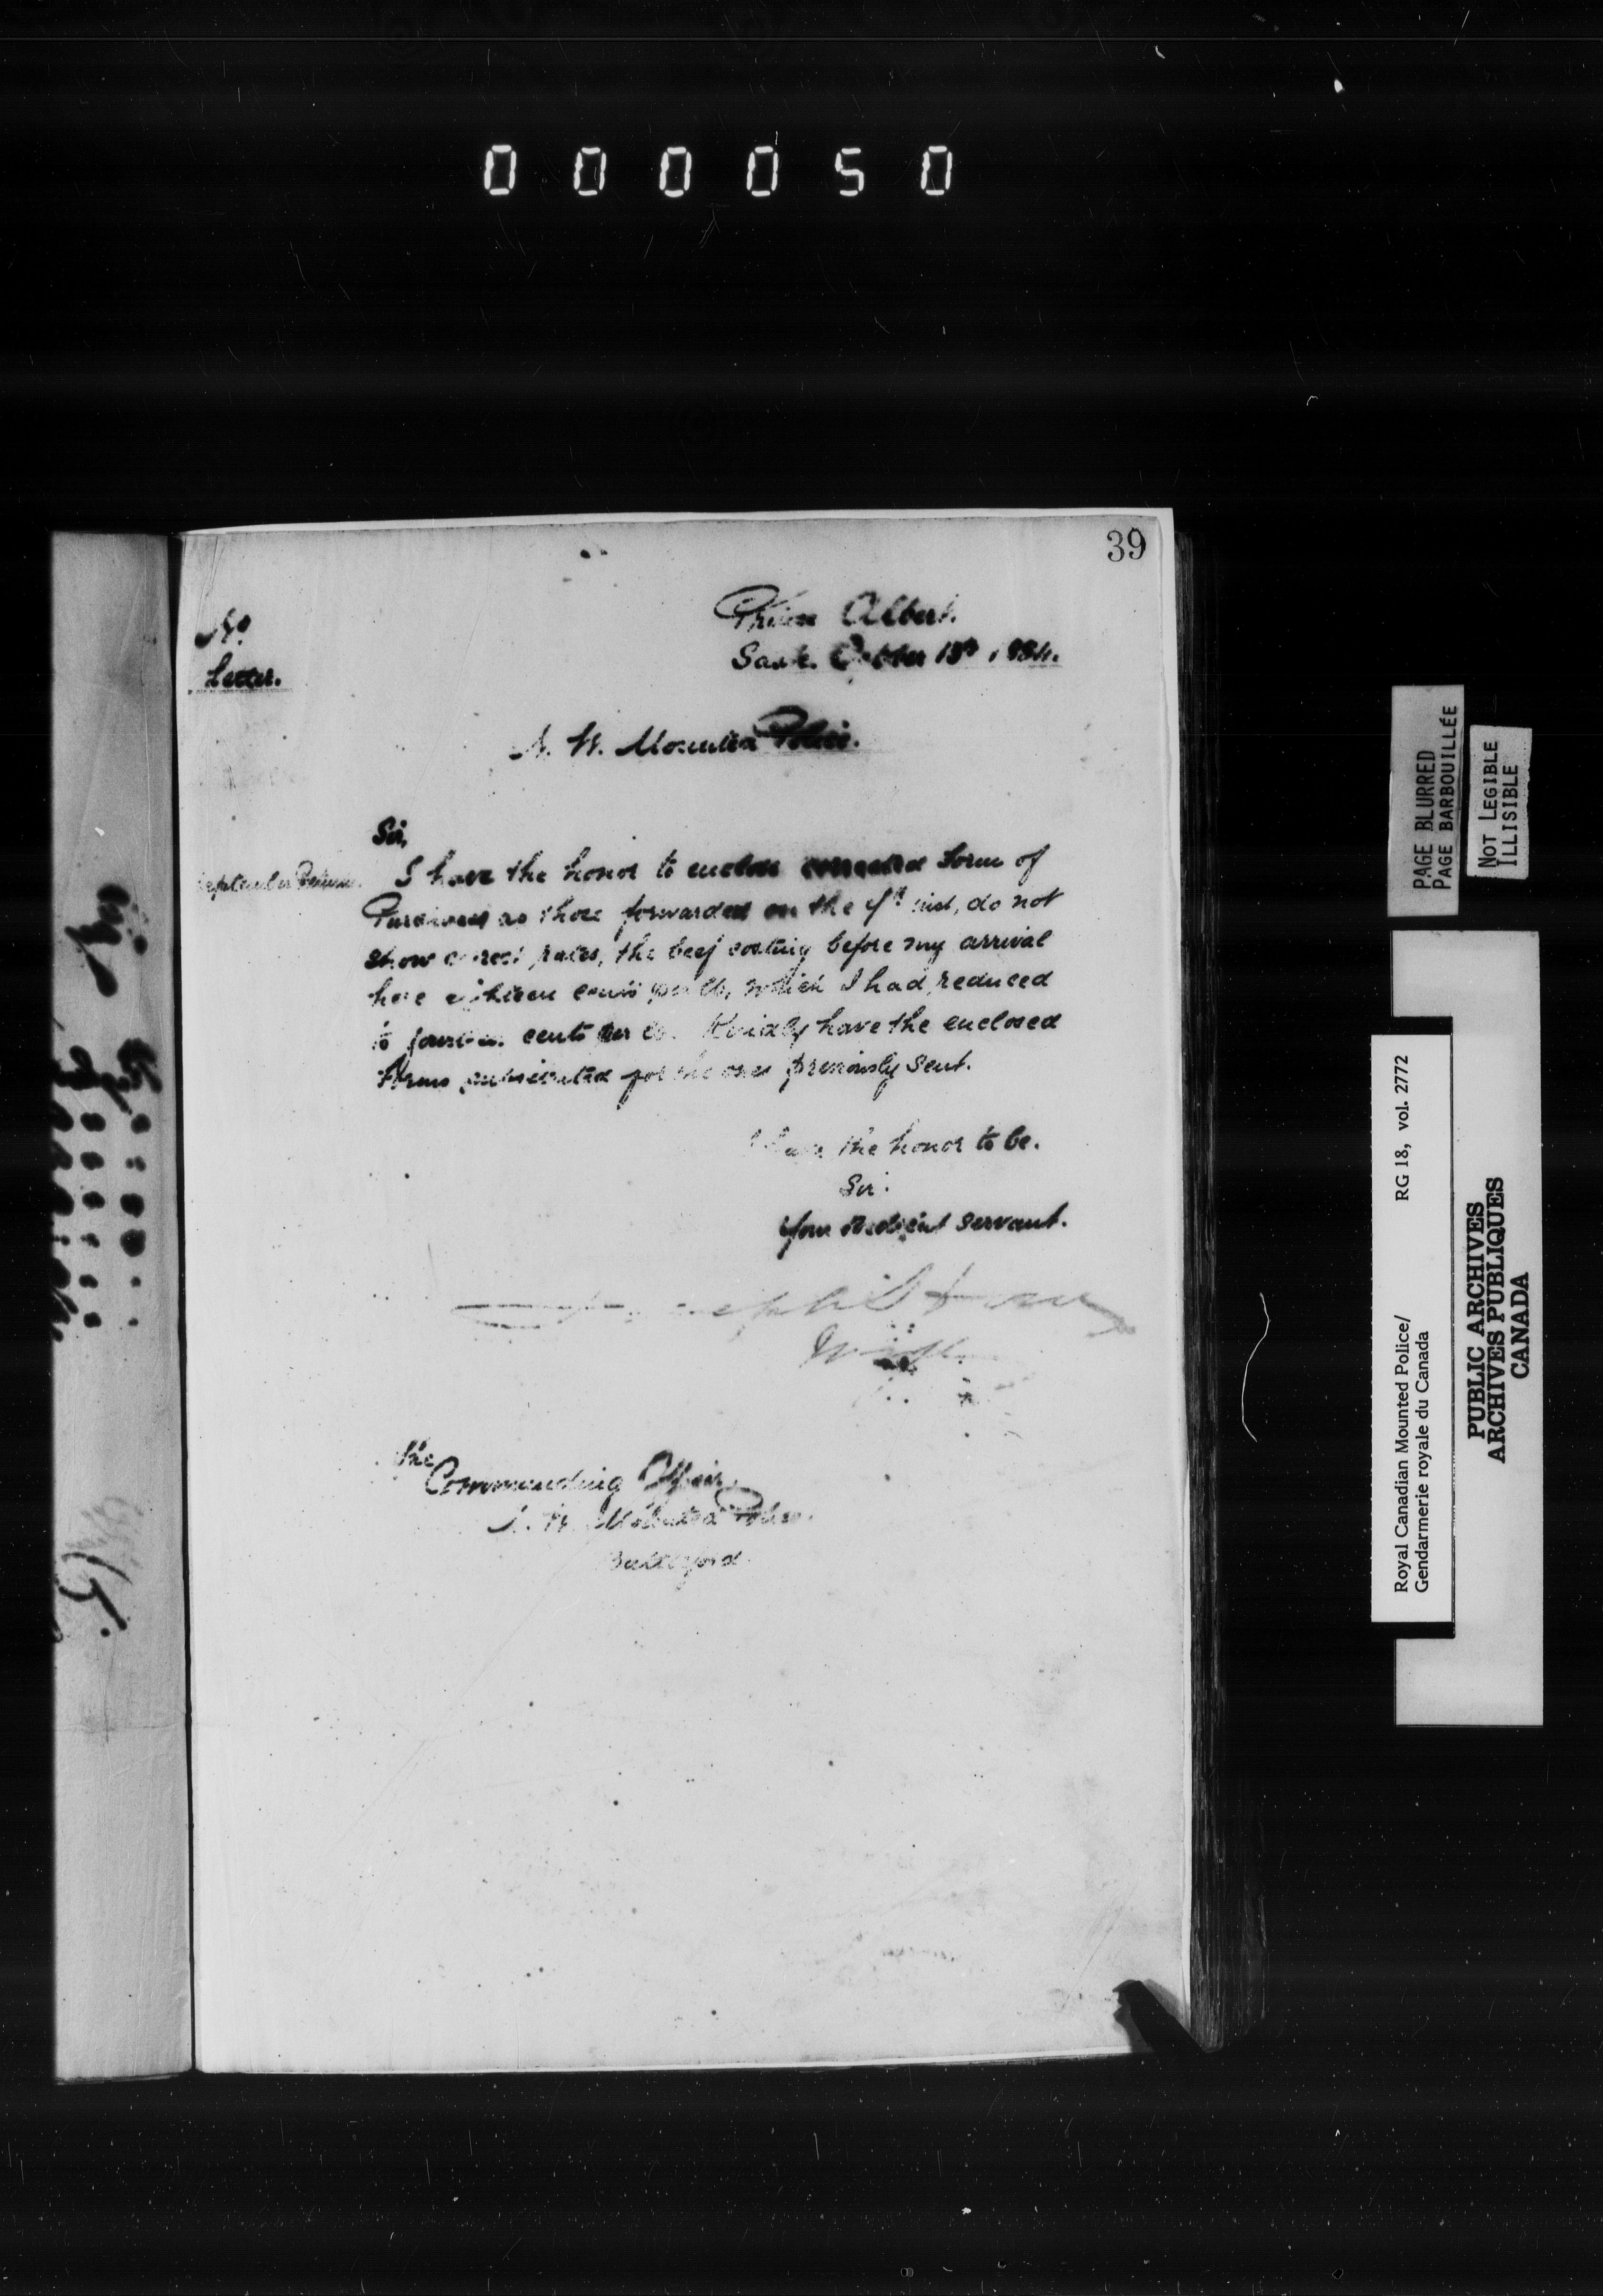 000050
39
Prince Albert.
Sask. October 13th 1884.
No.
Letter.
N. W. Mounted Police.
Sir,
September Returns.
I have the honor to enclose corrected Form of
Purchases as those forwarded on the inst, do not
show correct rates, the beef costing before my arrival
here eighteen cents per lb, which I had reduced
to fourteen cents per lb. Kindly have the enclosed
Forms substituted for the ones previously sent.
I have the honor to be.
Sir.
Your obedient servant.
The
Commanding Officer,
N. W. Mounted Police.
Battleford.
PAGE BLURRED
PAGE BARBOUILLÉE
NOT LEGIBLE
ILLISIBLE
Royal Canadian Mounted Police/ RG 18, vol. 2772
Gendarmerie royale du Canada
PUBLIC ARCHIVES
ARCHIVES PUBLIQUES
CANADA